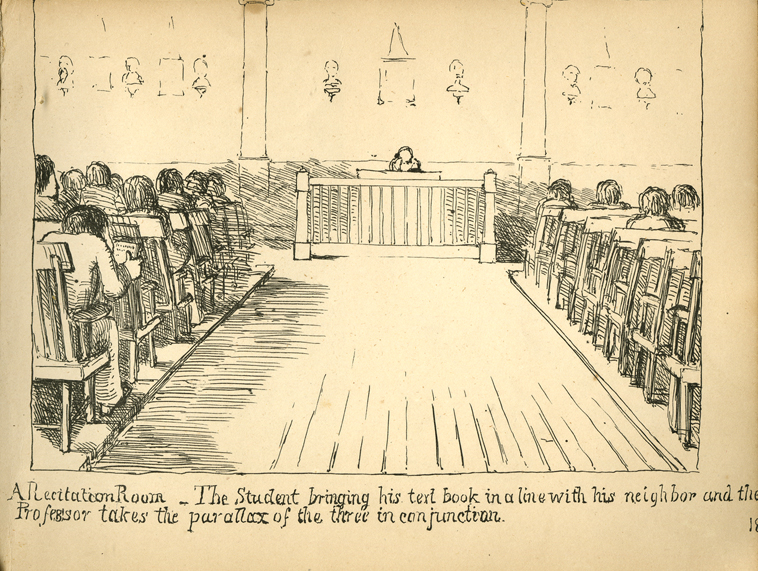 A Recitation Room – The Student bringing his text book in a line with his neighbor and the
Professor takes the parallax of the three in conjunction.
18